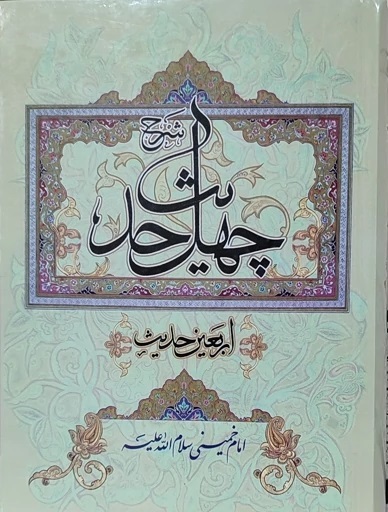 شرح
چهل حدیث
اربعین حدیث
امام خمینی سلام الله علیه